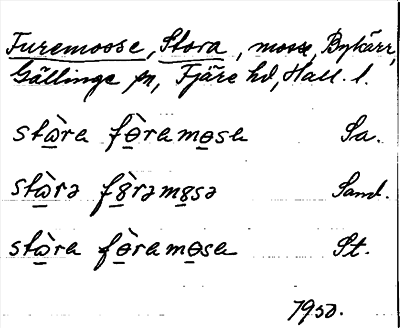 Furemosse, Stora, mosse, Bykärr,
Gällinge sn, Fjäre hd, Hall. l.
stὼ̲ra fɵ̲̀ramɵ̲sa Sa.
stὼ̲rə f8̲̀rəm8̲sə Sand.
stὼ̲ra fɵ̲̀ramɵ̲sa St.
1950.